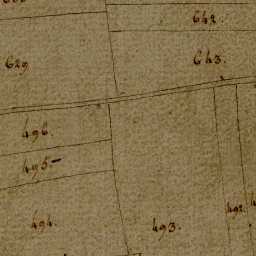 642.
629
643.
496.
495.
494.
493.
492